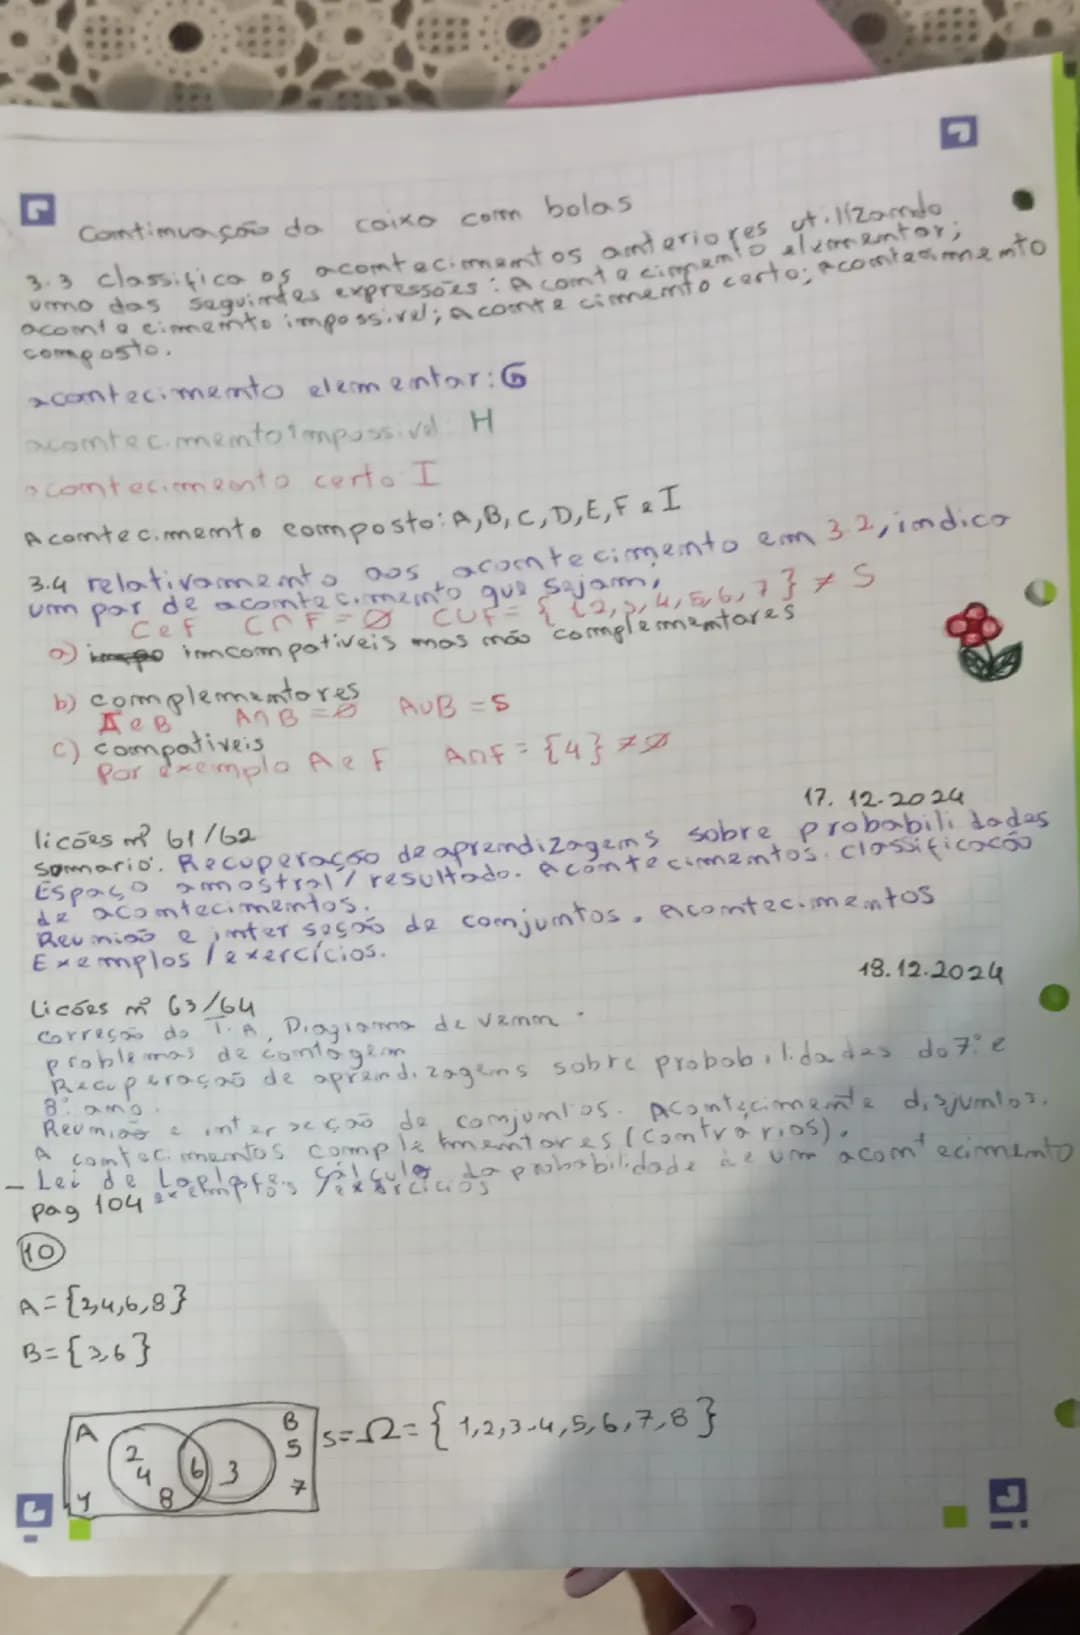 Continuação da caixa com bolas
3.3 classifica os acontecimentos anteriores utilizando
uma das seguintes expressões: Acontecimento elementar;
acontecimento impossivel; acontecimento certo; acontecimento
composto.
acontecimento elementar: G
acontecimento impossivel H
acontecimento certo I
Acontecimento composto: A, B, C, D, E, F e I
3.4 relativamento aos acontecimento em 3.2, indica
um par de acontecimento que sejam,
C e F C∩F = ∅ CUF = { 1,2,3,4,5,6,7 } ≠ S
a) incompativeis mas não complementares
b) complementares
A e B A∩B = ∅ AUB = S
c) compativeis
Por exemplo A e F A∩F = {4} ≠ ∅
17.12.2024
licões nº 61/62
Sumario. Recuperação de aprendizagens sobre probabilidades
Espaço amostral / resultado. Acontecimentos. Classificação
de acontecimentos.
Reunião e interseção de conjuntos. Acontecimentos
Exemplos / exercícios.
18.12.2024
Licões nº 63/64
Correção do T.A, Diagrama de Venn.
problemas de contagem
Recuperação de aprendizagens sobre probabilidades do 7º e
8º ano.
Reunião e interseção de conjuntos. Acontecimente disjuntos.
Acontecimentos complementares (contrarios).
- Lei de Laplace. Cálculo da probabilidade de um acontecimento
exemplos / exercicios
pag 104
10
A = {2,4,6,8}
B = {3,6}
A B
2 4 8 6 3 5 7
S = Ω = { 1,2,3,4,5,6,7,8 }